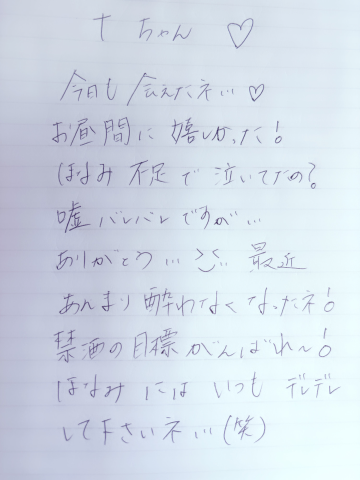 ナちゃん ♡
今日も会えたネ... ♡
お昼間に嬉しかった!
ほなみ不足で泣いてたの?
嘘バレバレですが...
ありがとう... 最近
あんまり酔わなくなったネ!
禁酒の目標がんばれ〜!
ほなみにはいつもデレデレ
して下さいネ... (笑)